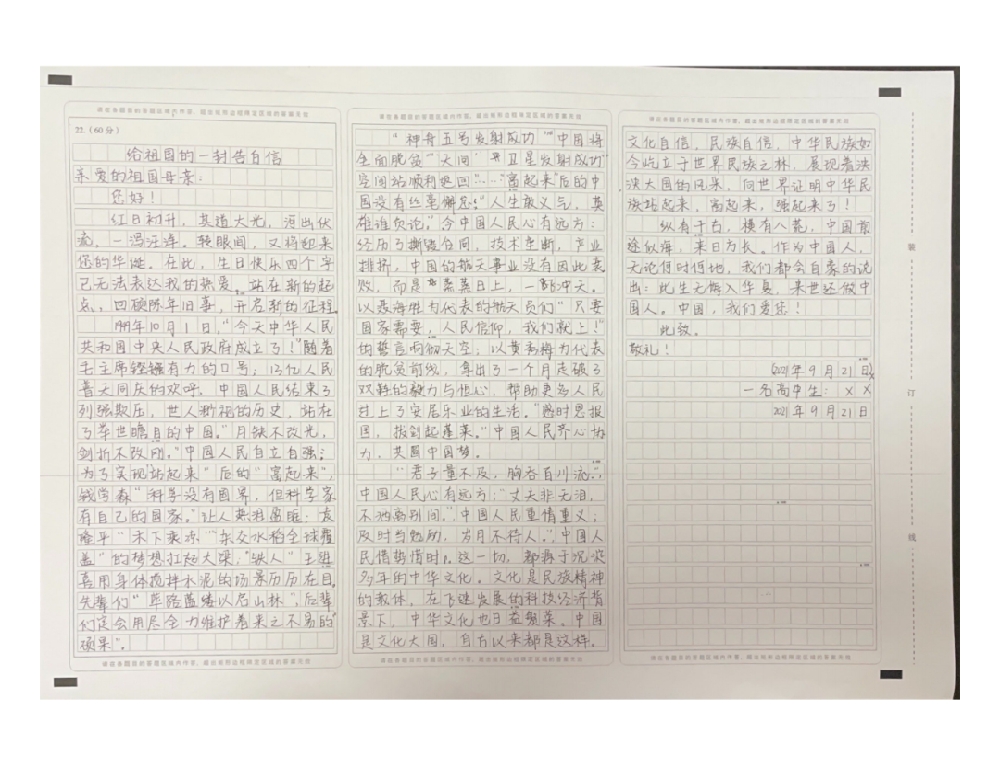 请在各题目的答题区域内作答，超出矩形边框限定区域的答案无效
22.（60分）
给祖国的一封告白信
亲爱的祖国母亲：
您好！
红日初升，其道大光，河出伏
流，一泻汪洋。转眼间，又将迎来
您的华诞。在此，生日快乐四个字
已无法表达我的热爱。站在新的起
点，回顾陈年旧事，开启新的征程。
那年10月1日，“今天中华人民
共和国中央人民政府成立了！”随着
毛主席铿锵有力的口号，亿人民
普天同庆的欢呼，中国人民结束了
列强欺压，世人鄙视的历史，站在
了举世瞩目的中国。“月缺不改光，
剑折不改刚。”中国人民自立自强；
为了实现“站起来”后的“富起来”，
钱学森“科学没有国界，但科学家
有自己的国家。”让人热泪盈眶；袁
隆平“禾下乘凉”“杂交水稻全球覆
盖”的梦想扛起大梁；“铁人”王进
喜用身体搅拌水泥的场景历历在目。
先辈们“筚路蓝缕以启山林”，后辈
们定会用尽全力维护着来之不易的“
硕果”。
请在各题目的答题区域内作答，超出矩形边框限定区域的答案无效
请在各题目的答题区域内作答，超出矩形边框限定区域的答案无效
“神舟五号发射成功”“中国将
全面脱贫”“天问一号卫星发射成功”
空间站顺利返回”……“富起来”后的中
国没有丝毫懈怠。“人生敢义气，英
雄谁负论。”今中国人民心有远方：
经历了撕毁合同，技术垄断，产业
排挤，中国的航天事业没有因此衰
败，而是蒸蒸日上，一飞冲天，
以聂海胜为代表的航天员们“只要
国家需要，人民信仰，我们就上！”
的誓言响彻天空；以黄秀梅为代表
的脱贫前线，拿出了一个月走破了
双鞋的毅力与恒心，帮助更多人民
过上了安居乐业的生活。“感时思报
国，拔剑起蒿莱。”中国人民齐心协
力，共圆中国梦。
“君子量不及，胸吞百川流。”
中国人民心有远方：“丈夫非无泪，
不洒离别间。”中国人民重情重义；
“及时当勉励，岁月不待人。”中国人
民惜势惜时。这一切，都源于沉淀
多年的中华文化。文化是民族精神
的载体，在飞速发展的科技经济背
景下，中华文化也日益繁荣。中国
是文化大国，自古以来都是这样。
请在各题目的答题区域内作答，超出矩形边框限定区域的答案无效
请在各题目的答题区域内作答，超出矩形边框限定区域的答案无效
文化自信，民族自信，中华民族如
今屹立于世界民族之林，展现着泱
泱大国的风采，向世界证明中华民
族站起来，富起来，强起来了！
纵有千古，横有八荒，中国前
途似海，来日方长。作为中国人，
无论何时何地，我们都会自豪的说
出：此生无悔入华夏，来世还做中
国人。中国，我们爱您！
此致。
敬礼！
2021年9月21日
一名高中生：××
2021年9月21日
请在各题目的答题区域内作答，超出矩形边框限定区域的答案无效
装
订
线